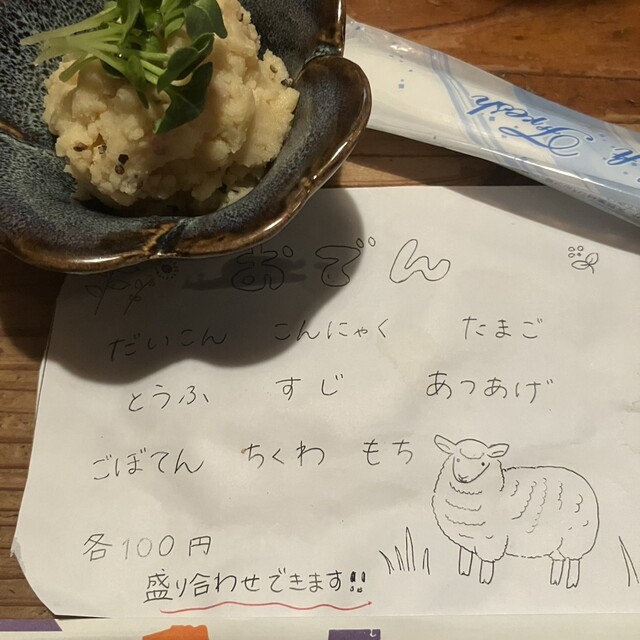 Fresh
おでん
だいこん こんにゃく たまご
とうふ すじ あつあげ
ごぼてん ちくわ もち
各100円
盛り合わせできます!!